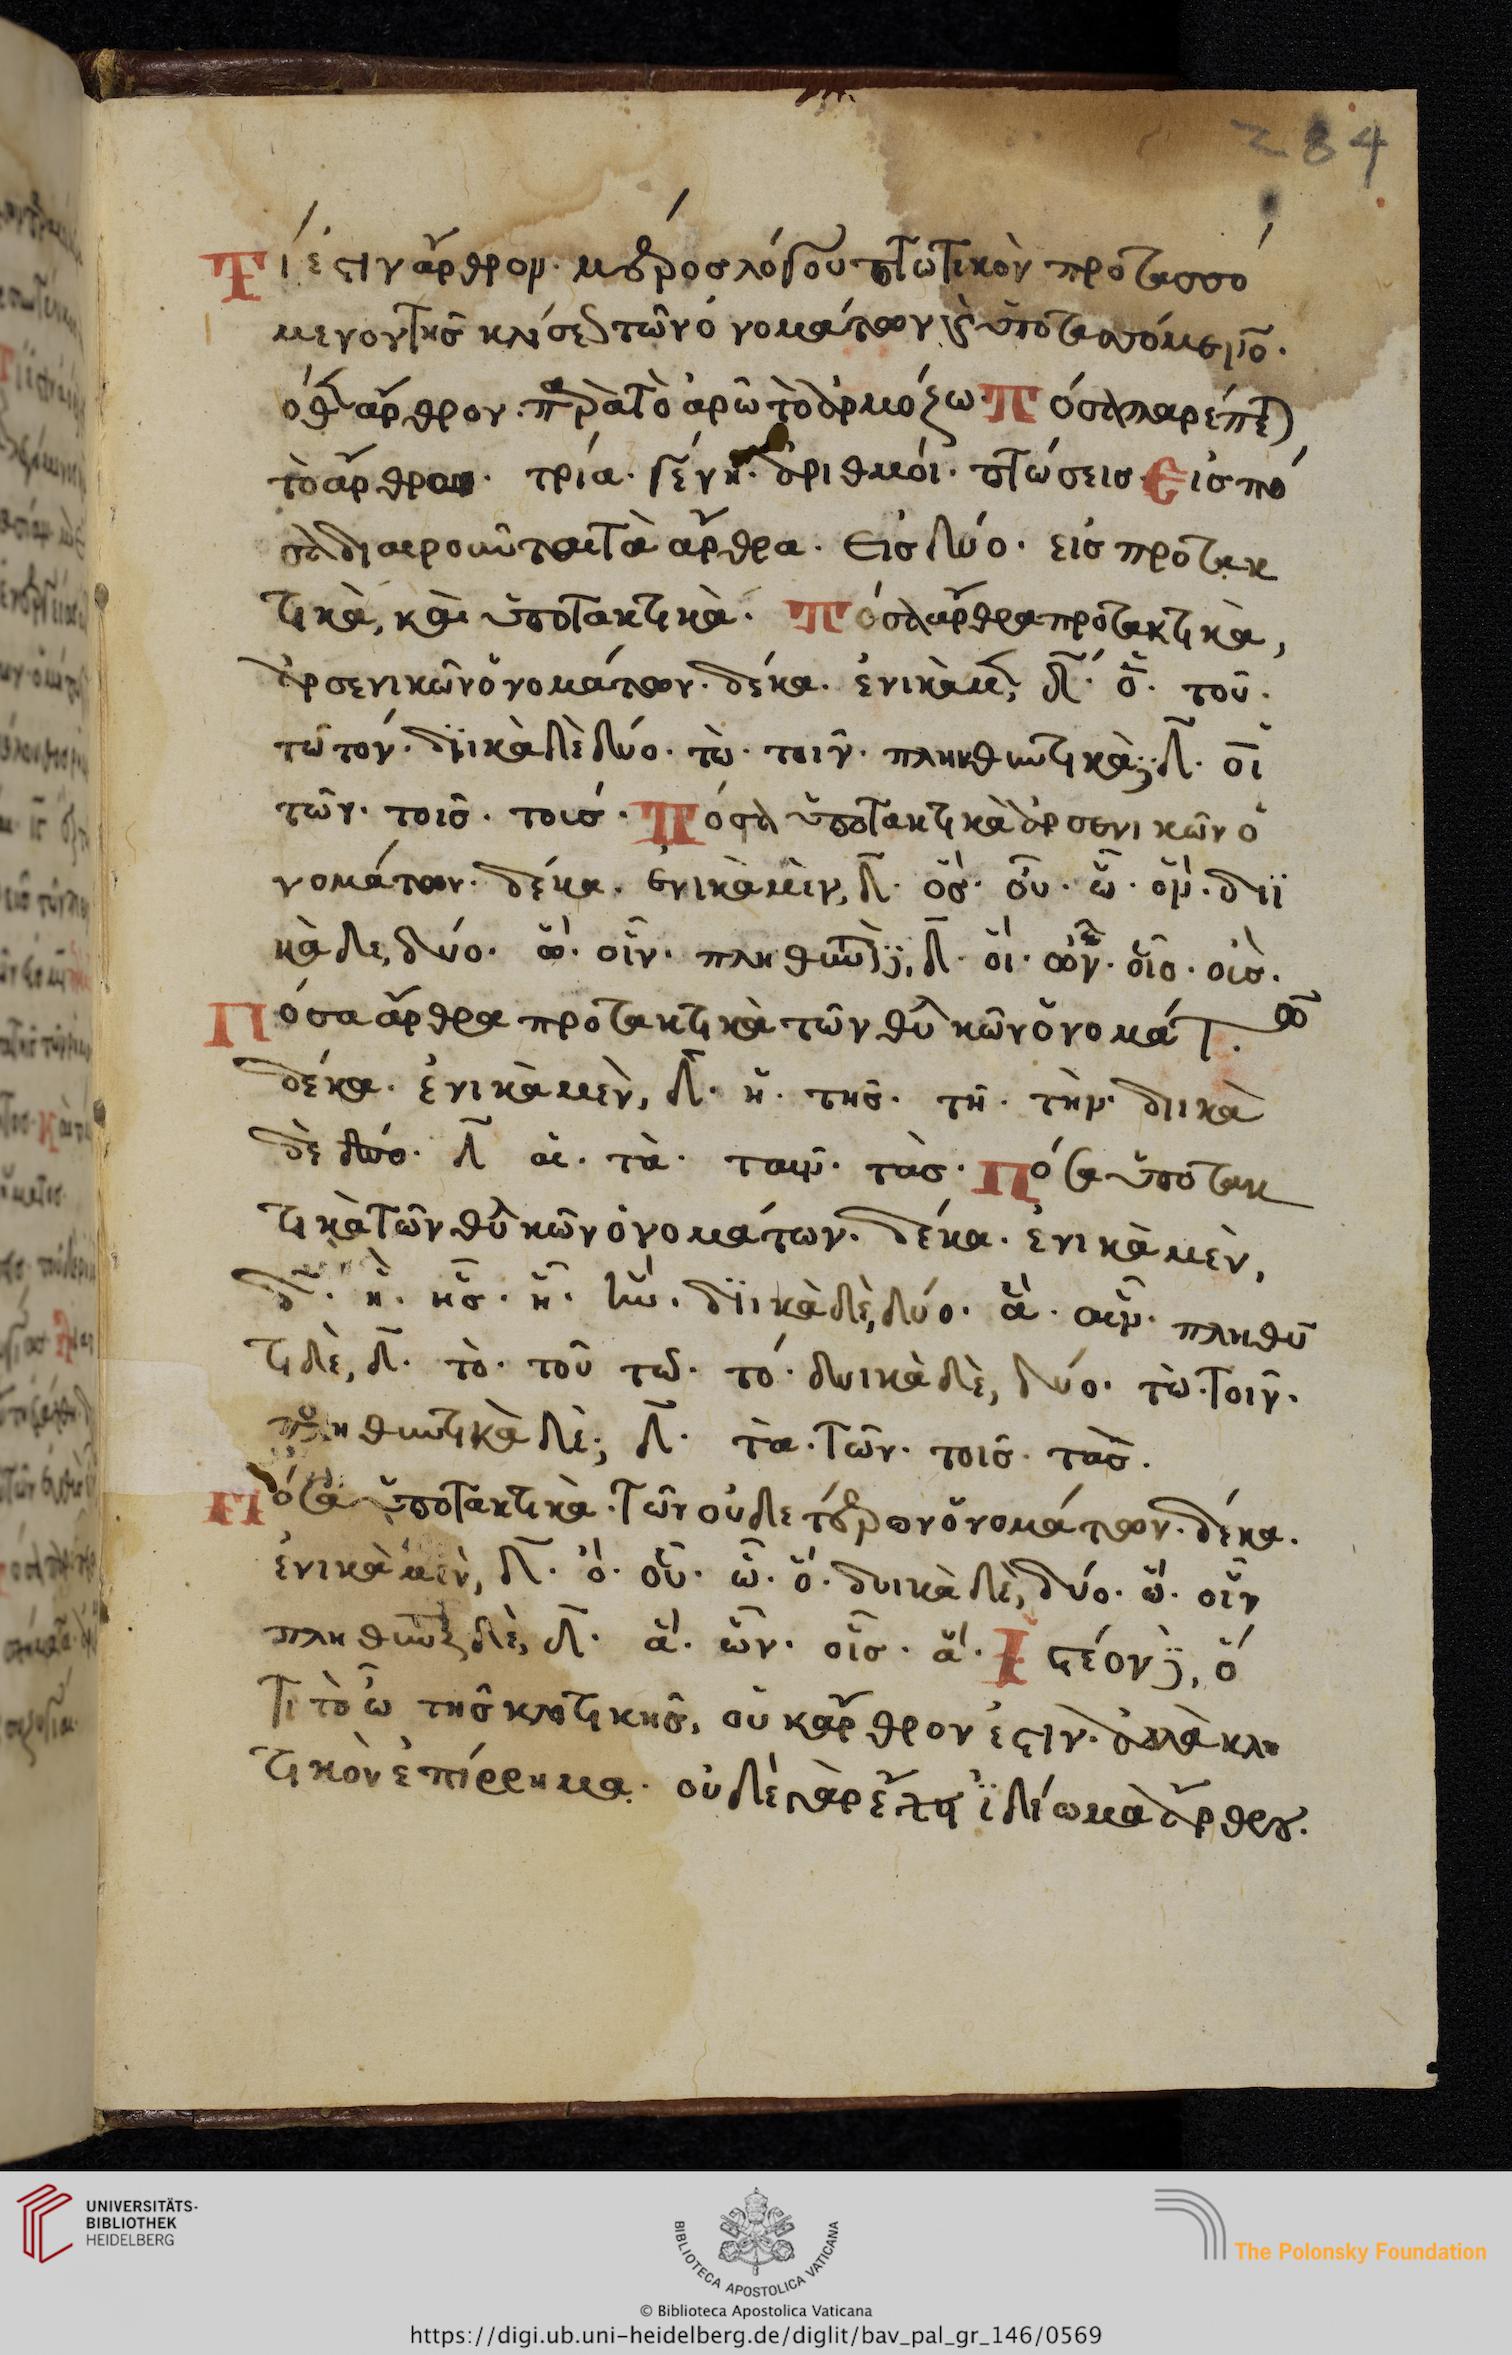 284
Τί ἐστιν ἄρθρον· μέρος λόγου πτωτικὸν προτασσό
μενον τῆς κλίσεως τῶν ὀνομάτων καὶ ὑποτασσόμενον·
ἄρθρον· παρὰ τὸ ἀρῶ τὸ ἁρμόζω· Πόσα παρέπεται
τὸ ἄρθρον· τρία· γένη· ἀριθμοί· πτώσεις· Εἰς πό
σα διαιροῦνται τὰ ἄρθρα· εἰς δύο· εἰς προτακ
τικὰ, καὶ ὑποτακτικὰ· Πόσα ἄρθρα προτακτικὰ,
ἀρσενικῶν ὀνομάτων· δέκα· ἑνικὰ μὲν, δ· ὁ· τοῦ·
τῶ τόν· δυϊκὰ δὲ δύο· τὼ· τοῖν· πληθυντικὰ δὲ, δ· οἱ
τῶν· τοῖς· τούς· Πόσα ὑποτακτικὰ ἀρσενικῶν ὀ
νομάτων· δέκα· ἑνικὰ μὲν, δ· ὅς· οὗ· ᾧ· ὅν· δυϊ
κὰ δὲ, δύο· ὥ· οἷν· πληθυντικὰ δὲ, δ· οἵ· ὧν· οἷς· οὓς·
Πόσα ἄρθρα προτακτικὰ τῶν θηλυκῶν ὀνομάτων·
δέκα· ἑνικὰ μὲν, δ· ἡ· τῆς· τῆ· τὴν· δυικὰ
δὲ δύο· δ αἱ· τὰ· ταῖν· τὰς· Πόσα ὑποτακ
τικὰ τῶν θηλυκῶν ὀνομάτων· δέκα· ἑνικὰ μὲν,
δ· ἣ· ἧς· ᾗ· ἥν· δυϊκὰ δὲ, δύο· ἅ· αἷν· πληθυν
τι δὲ, δ· τὸ· τοῦ τῶ· τό· δυικὰ δὲ, δύο· τὼ· τοῖν·
πληθυντικὰ δὲ, δ· τὰ· τῶν· τοῖς· τὰς·
Πόσα ὑποτακτικὰ· τῶν οὐδετέρων ὀνομάτων· δέκα·
ἑνικὰ μὲν, δ· ὅ· οὗ· ᾧ· ὅ· δυικὰ δὲ, δύο· ὥ· οἷν
πληθυντικὰ δὲ, δ· ἅ· ὧν· οἷς· ἅ· Ἰστέον δὲ, ὅ
τι τὸ ὦ τῆς κλητικῆς, οὐκ ἄρθρον ἐστὶν· ἀλλὰ κλη
τικὸν ἐπίρρημα· οὐδὲ γὰρ ἔχει ἰδίωμα ἄρθρου·
UNIVERSITÄTS-
BIBLIOTHEK
HEIDELBERG
BIBLIOTECA APOSTOLICA VATICANA
The Polonsky Foundation
© Biblioteca Apostolica Vaticana
https://digi.ub.uni-heidelberg.de/diglit/bav_pal_gr_146/0569